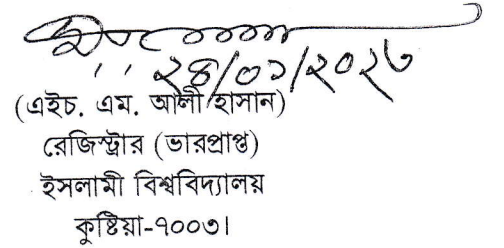 ২৪/০১/২০২৩
(এইচ. এম. আলী হাসান)
রেজিস্ট্রার (ভারপ্রাপ্ত)
ইসলামী বিশ্ববিদ্যালয়
কুষ্টিয়া-৭০০৩।